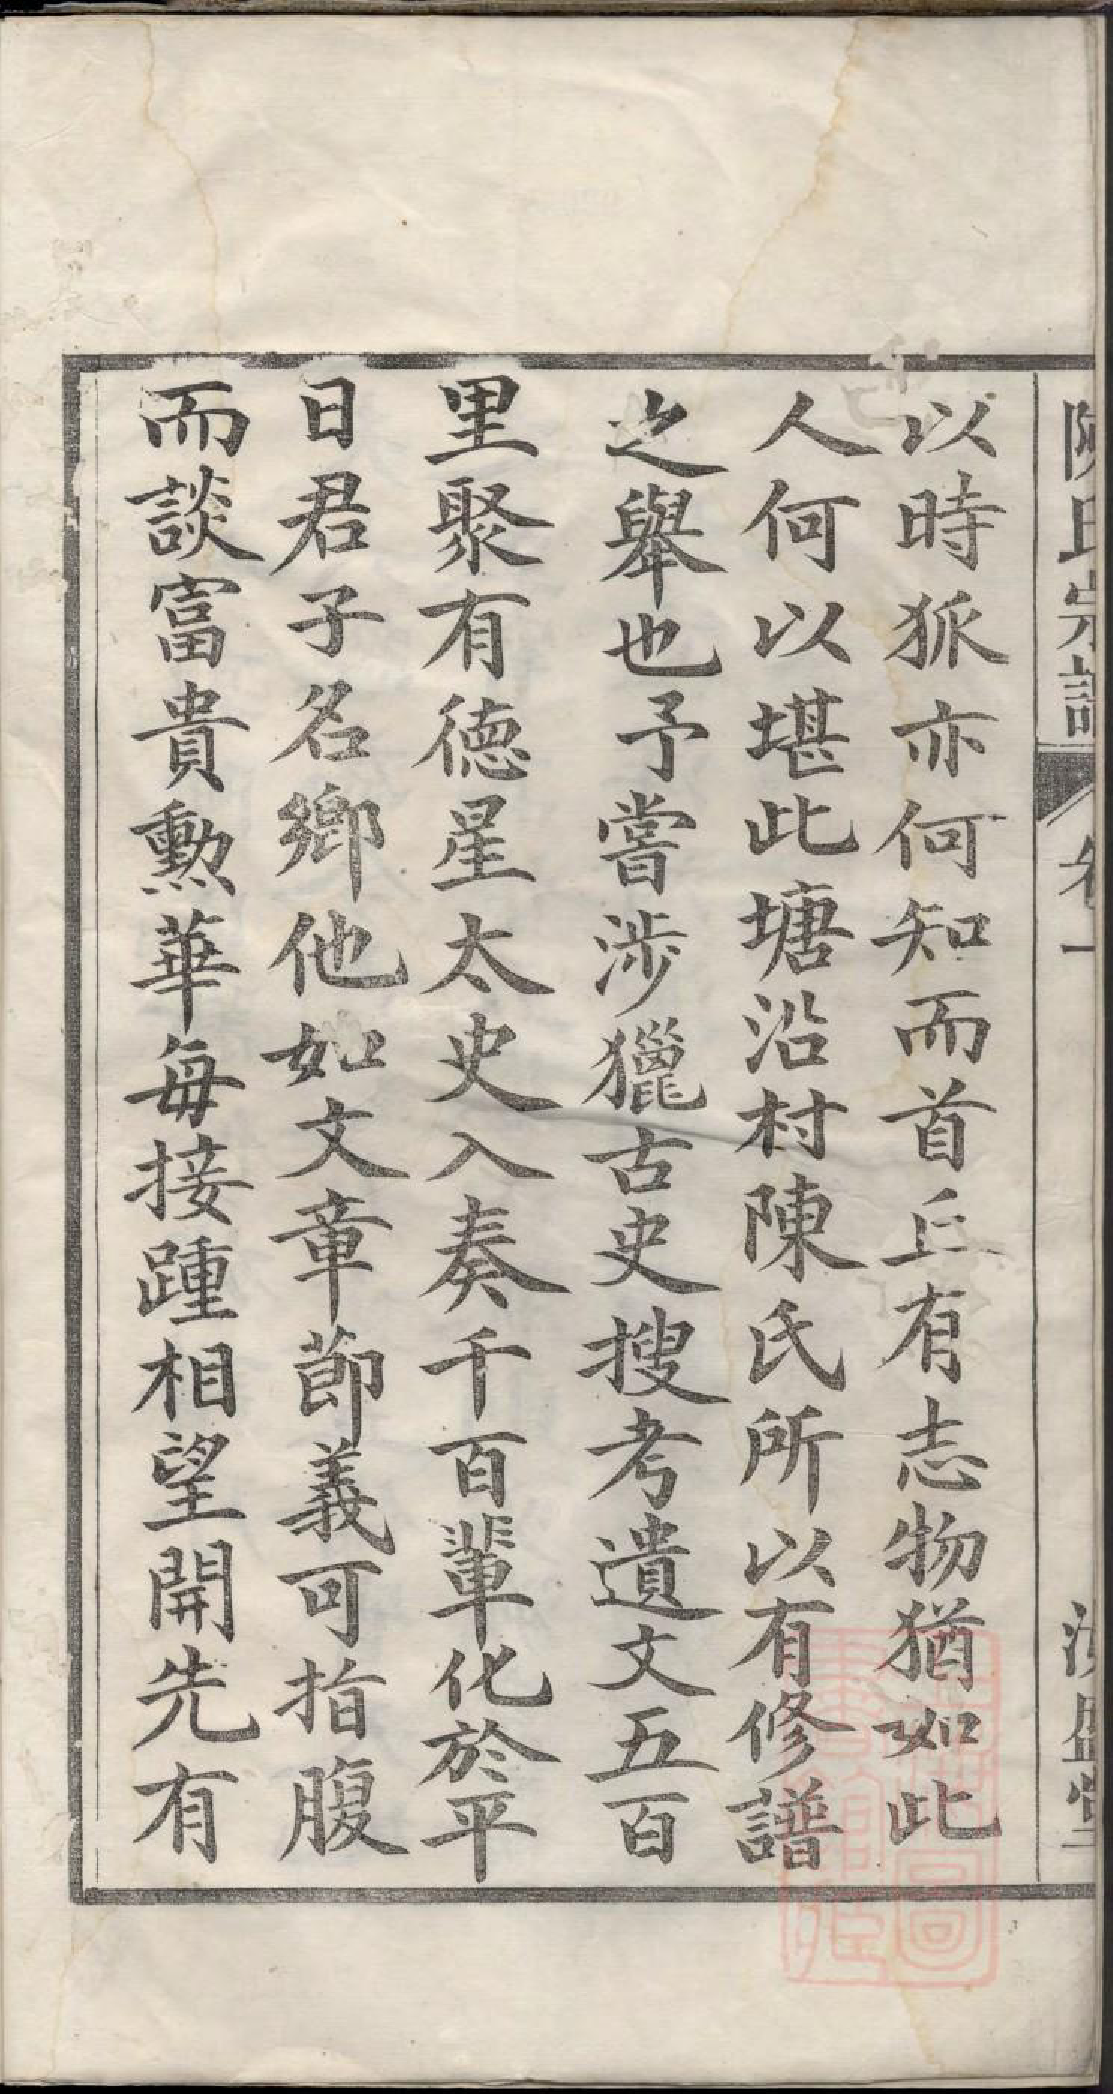 陳氏宗譜 卷一
以時狐亦何知而首丘有志物猶如此
人何以堪此塘沿村陳氏所以有修譜
之舉也予嘗涉獵古史搜考遺文五百
里聚有德星太史入奏千百輩化於平
日君子名鄉他如文章節義可指腹
而談富貴勳華每接踵相望開先有